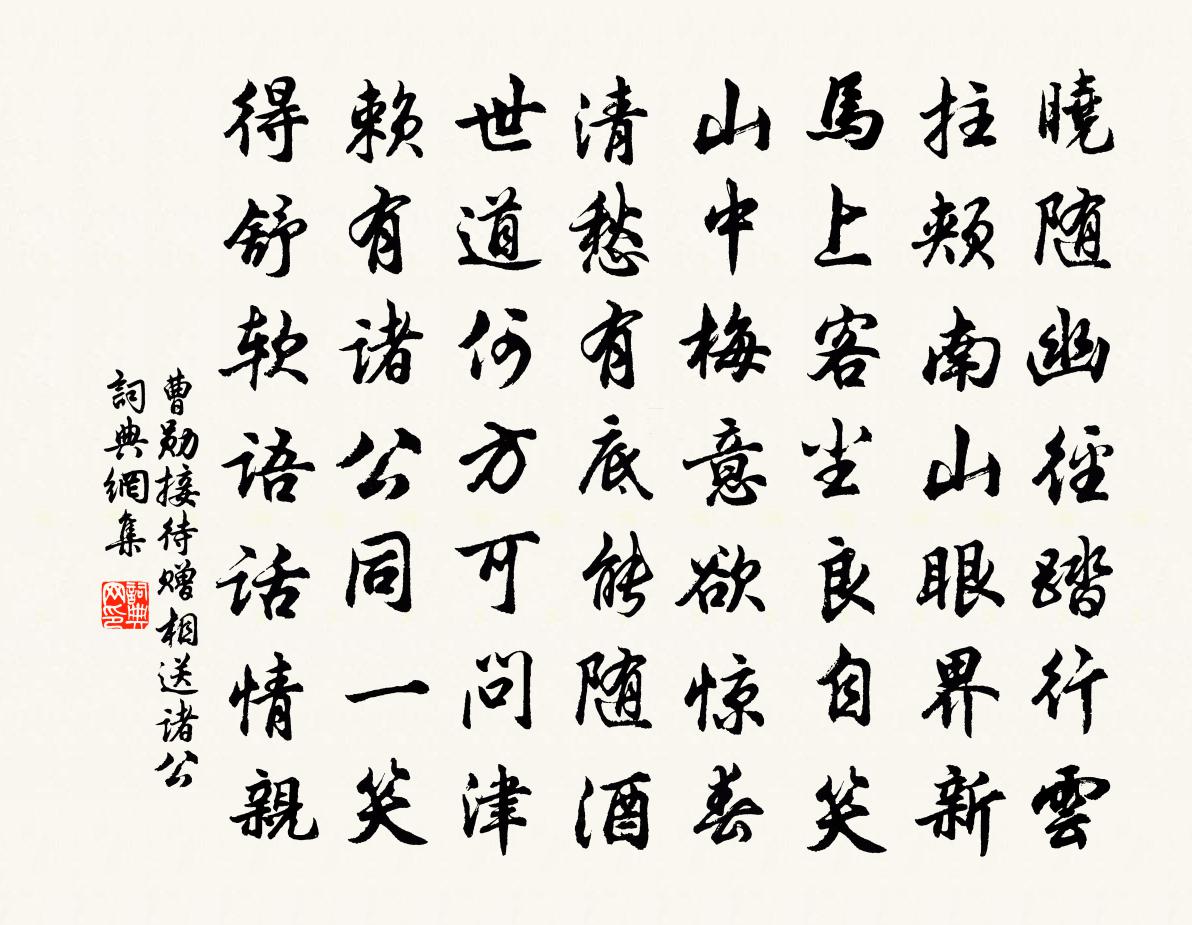 曉随幽徑踏行雲
拄頰南山眼界新
馬上客坐良自笑
山中梅意欲惊春
清愁有底能随酒
世道何方可問津
赖有诸公同一笑
得舒软语话情親
曹勋接待赠相送诸公
詞典網集
詞典网印